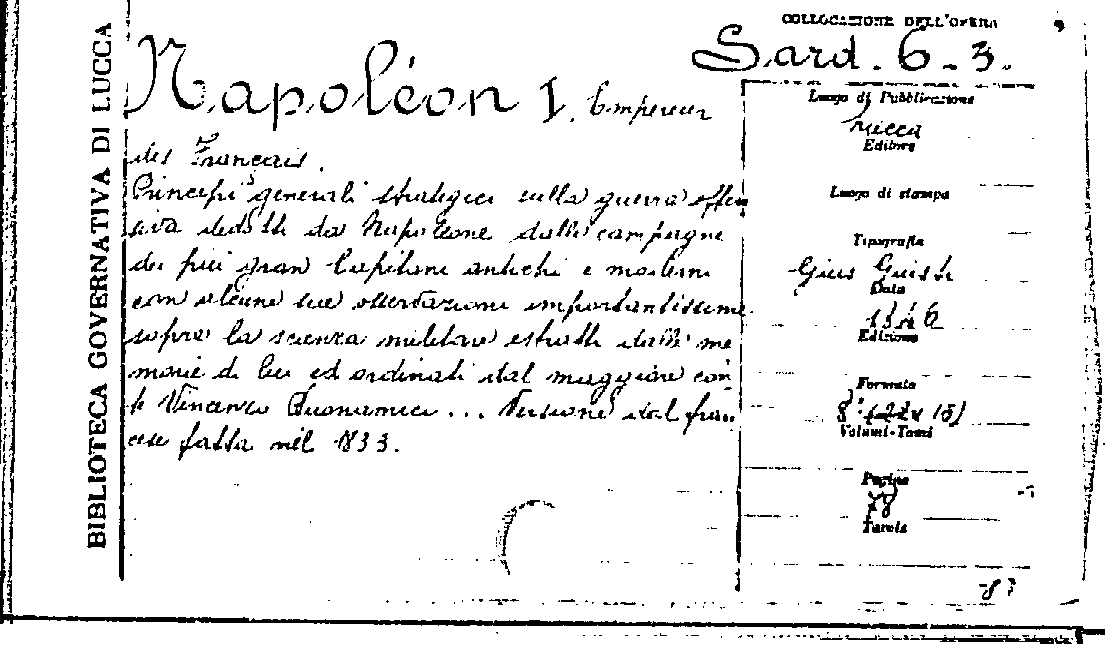 BIBLIOTECA GOVERNATIVA DI LUCCA
COLLOCAZIONE DELL'OPERA
Sard. 6-3.
Napoléon I. Empereur
des Français.
Principi generali strategici sulla guerra offen
siva dedotti da Napoleone dalle campagne
dei più gran Capitani antichi e moderni
con alcune sue osservazioni importantissime
sopra la scienza militare estratti dalle me
morie di lui ed ordinati dal maggiore con
te Vincenzo Buonamici... Versione dal fran
cese fatta nel 1833.
Luogo di Pubblicazione
Lucca
Editore
Luogo di stampa
Tipografia
Gius Giusti
Data
1846
Edizione
Formato
8º (22 x 15)
Volumi-Tomi
Pagine
78
Tavole